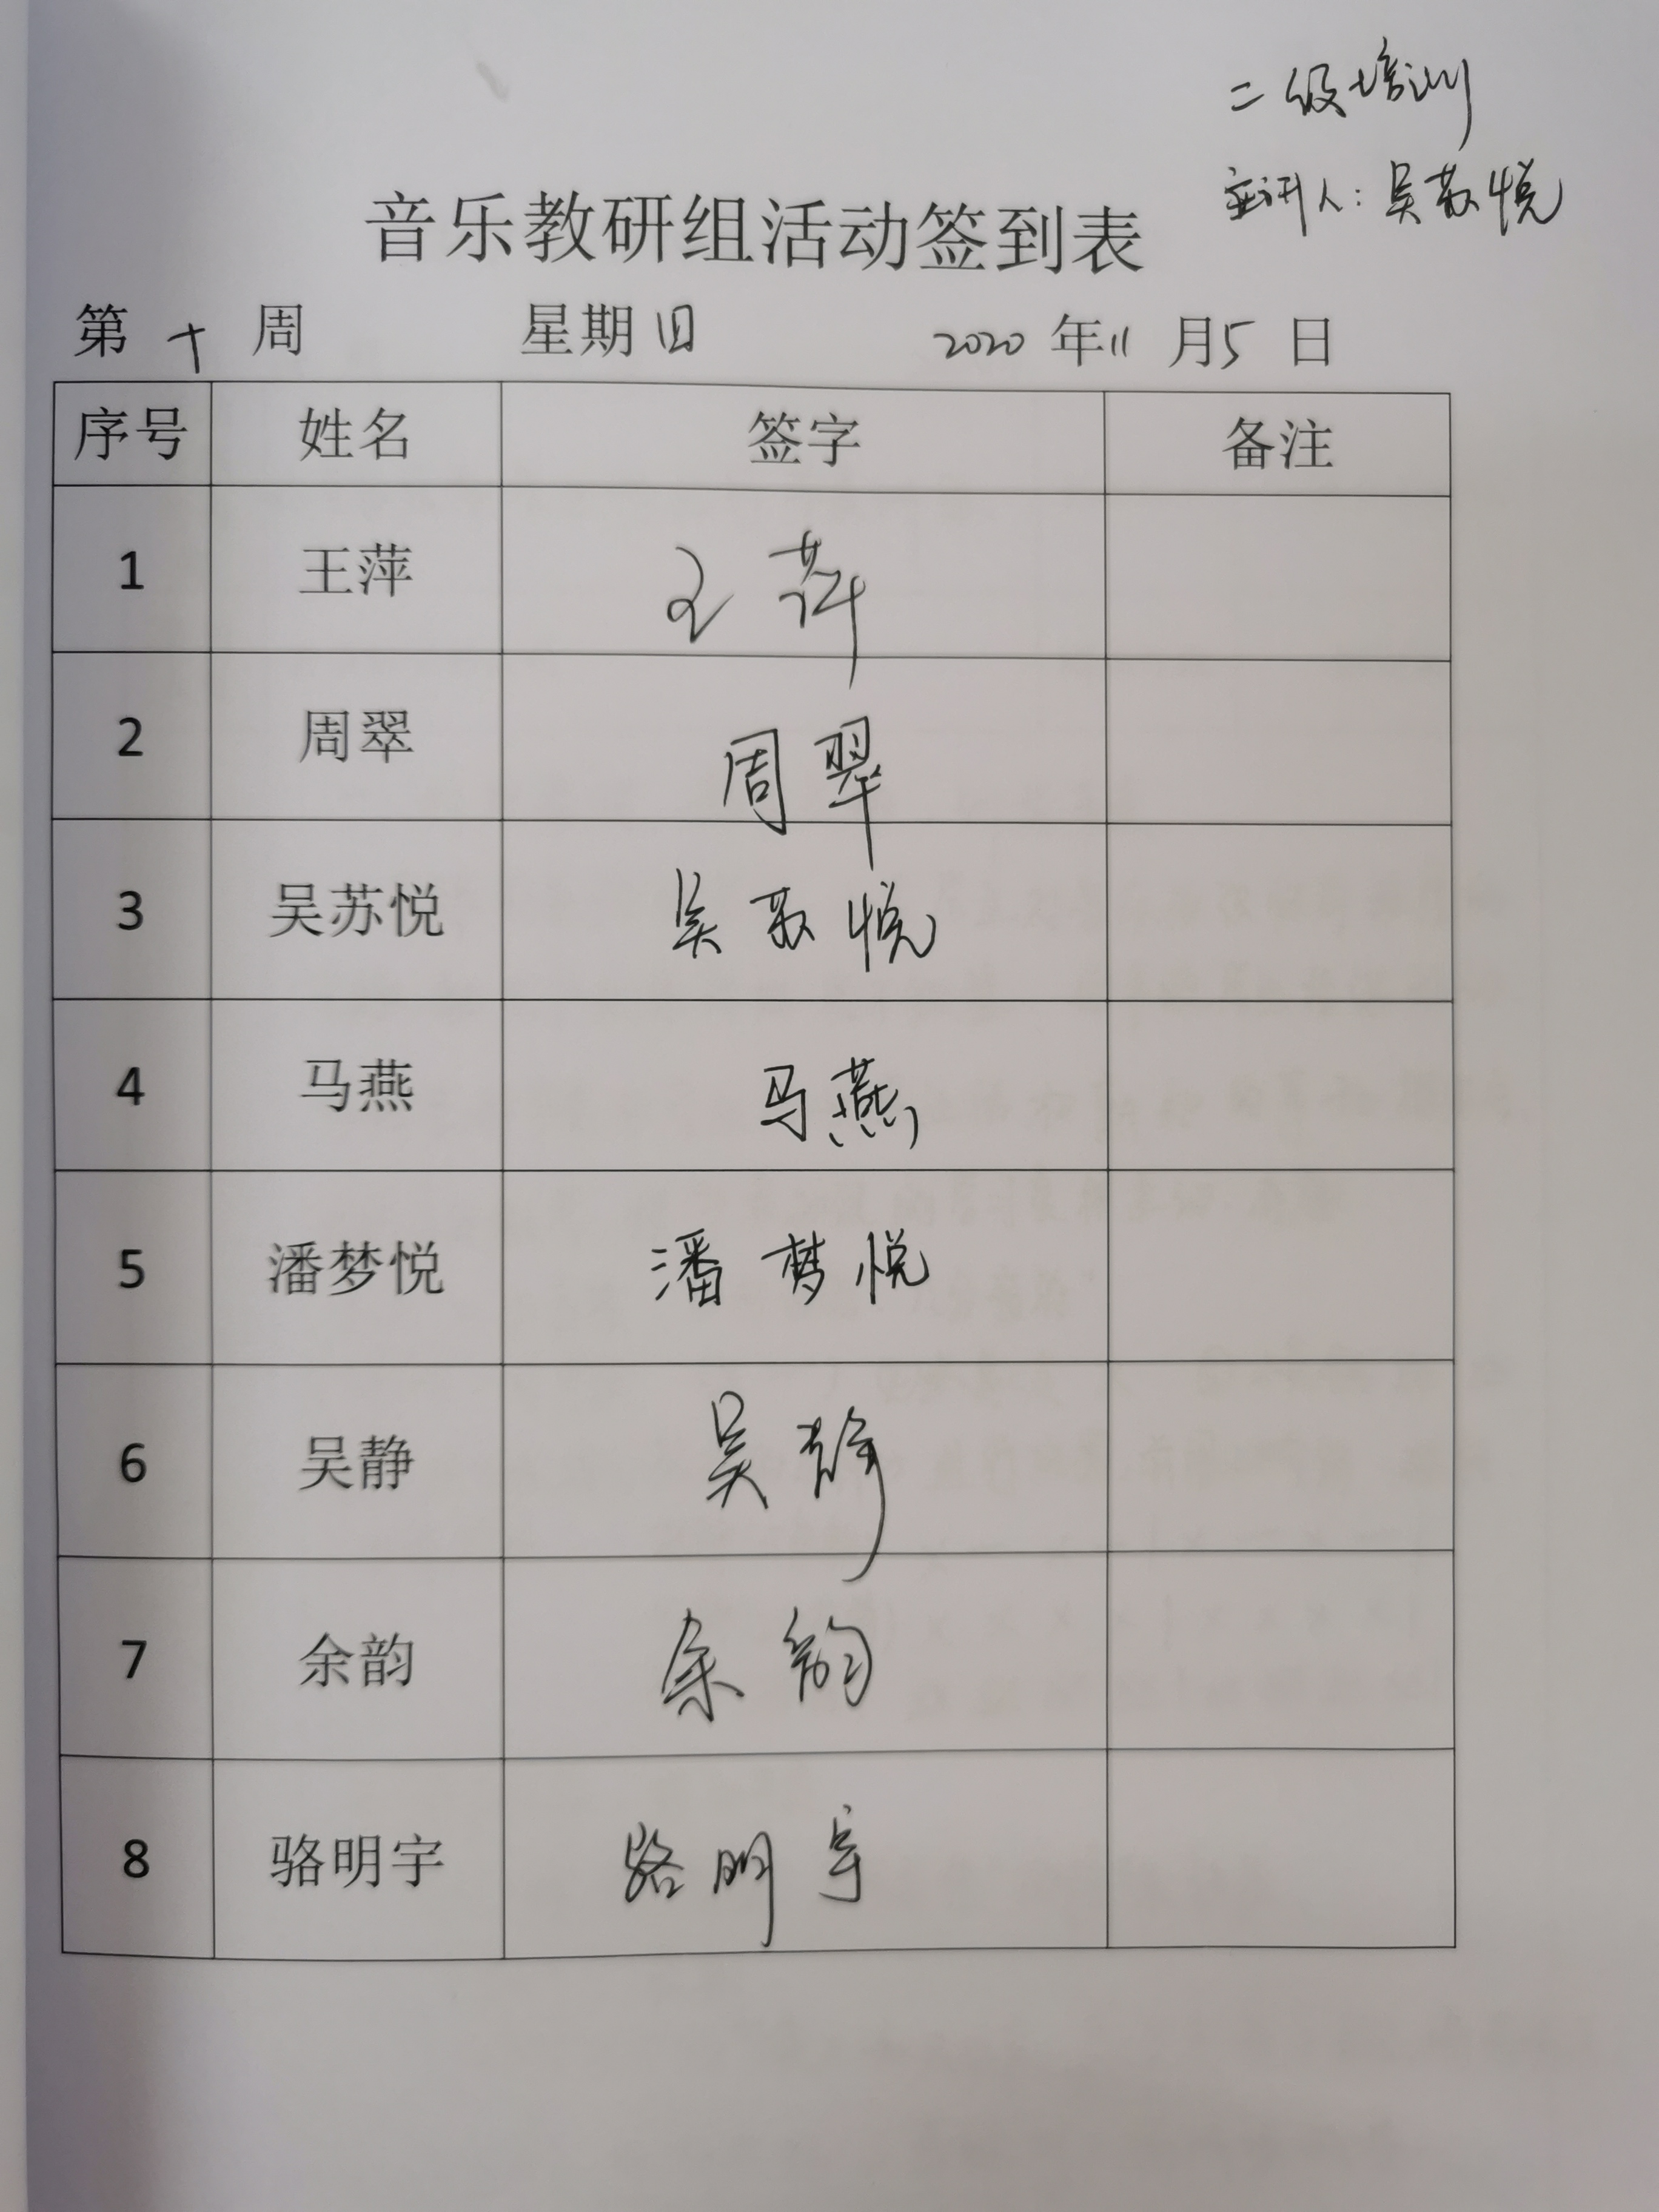 二级培训
主讲人：吴苏悦
音乐教研组活动签到表
第 十 周 星期四 2020 年 11 月 5 日
序号 姓名 签字 备注
1 王萍 王萍
2 周翠 周翠
3 吴苏悦 吴苏悦
4 马燕 马燕
5 潘梦悦 潘梦悦
6 吴静 吴静
7 余韵 余韵
8 骆明宇 骆明宇